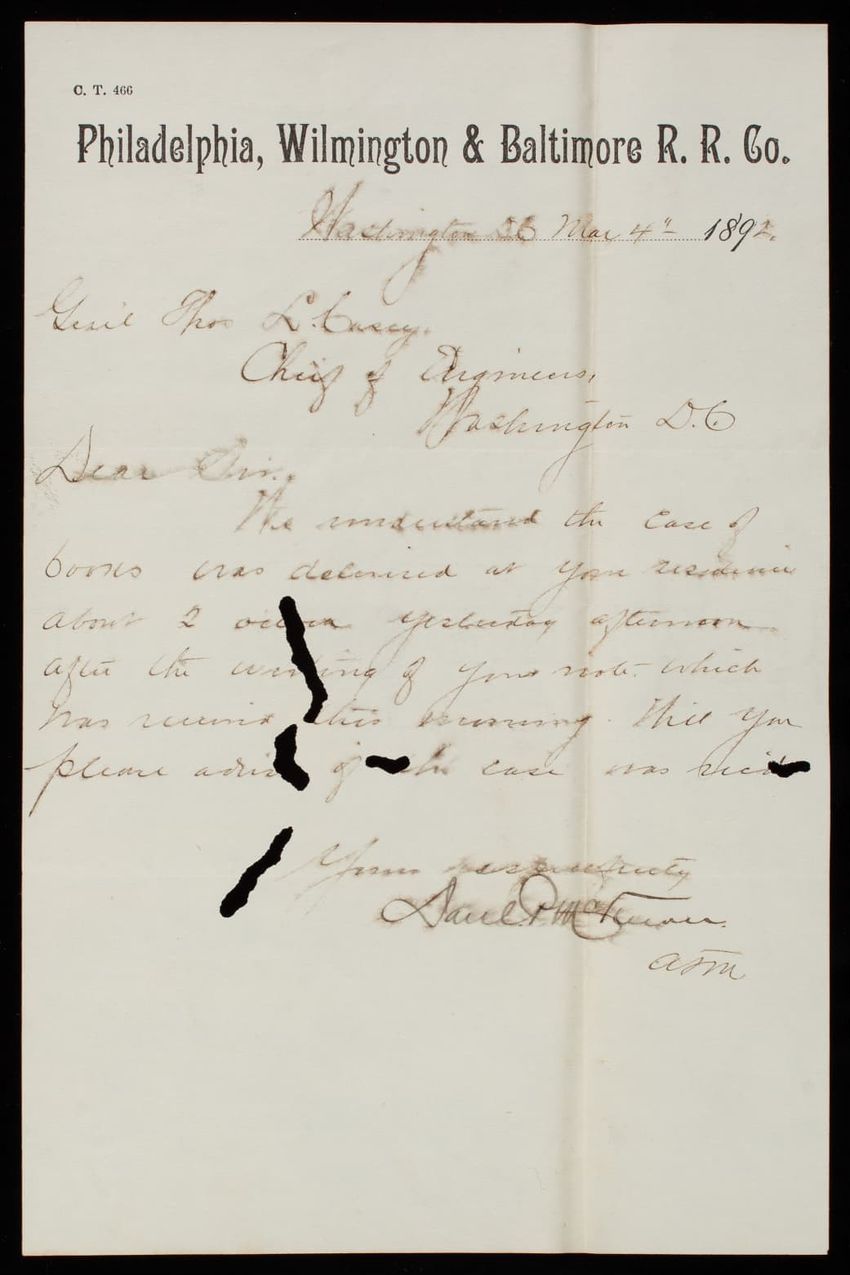 C. T. 466
Philadelphia, Wilmington & Baltimore R. R. Co.
Washington DC Mar 4" 1892.
Genl Thos L. Casey.
Chief of Engineers,
Washington D.C
Dear Sir.,
We understand the case of
books was delivered at your residence
about 2 yesterday afternoon
after the writing of your note which
was received this morning. Will you
please advise if the case was recd
Yours respectfully